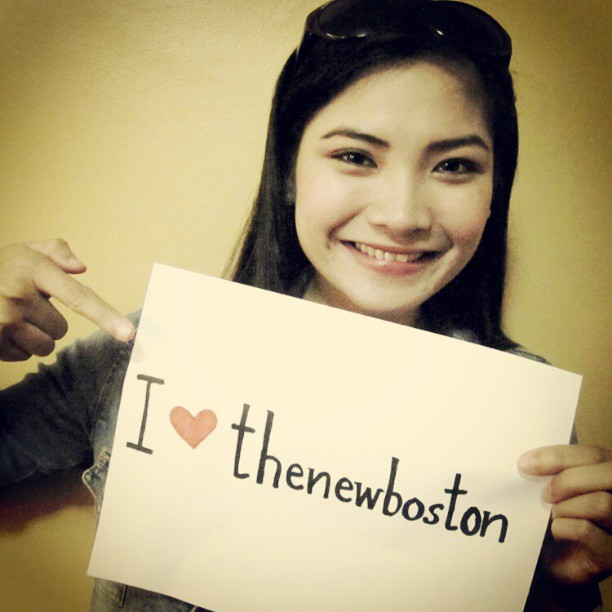 I ♥ thenewboston